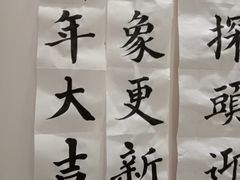 探頭迎
象更新
年大吉